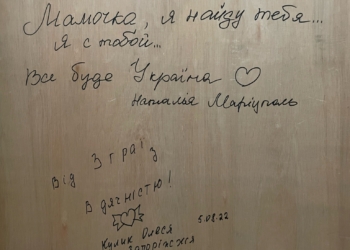 Мамочка, я найду тебя...
Я с тобой...
Все буде Україна ♡
Наталья Маріуполь
Від Зграї з
вдячністю!
Кулик Олеся 5.08.22
Запоріжжя